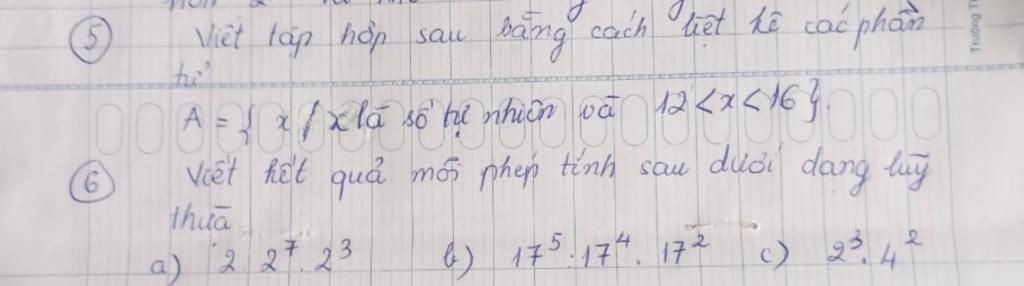 ⑤ Viết tập hợp sau bằng cách liệt kê các phần
tử
A = { x / x là số tự nhiên và 12 < x < 16 }.
⑥ Viết kết quả mỗi phép tính sau dưới dạng luỹ
thừa
a) 2 . 2⁷ . 2³ b) 17⁵ : 17⁴ . 17² c) 2³ . 4²